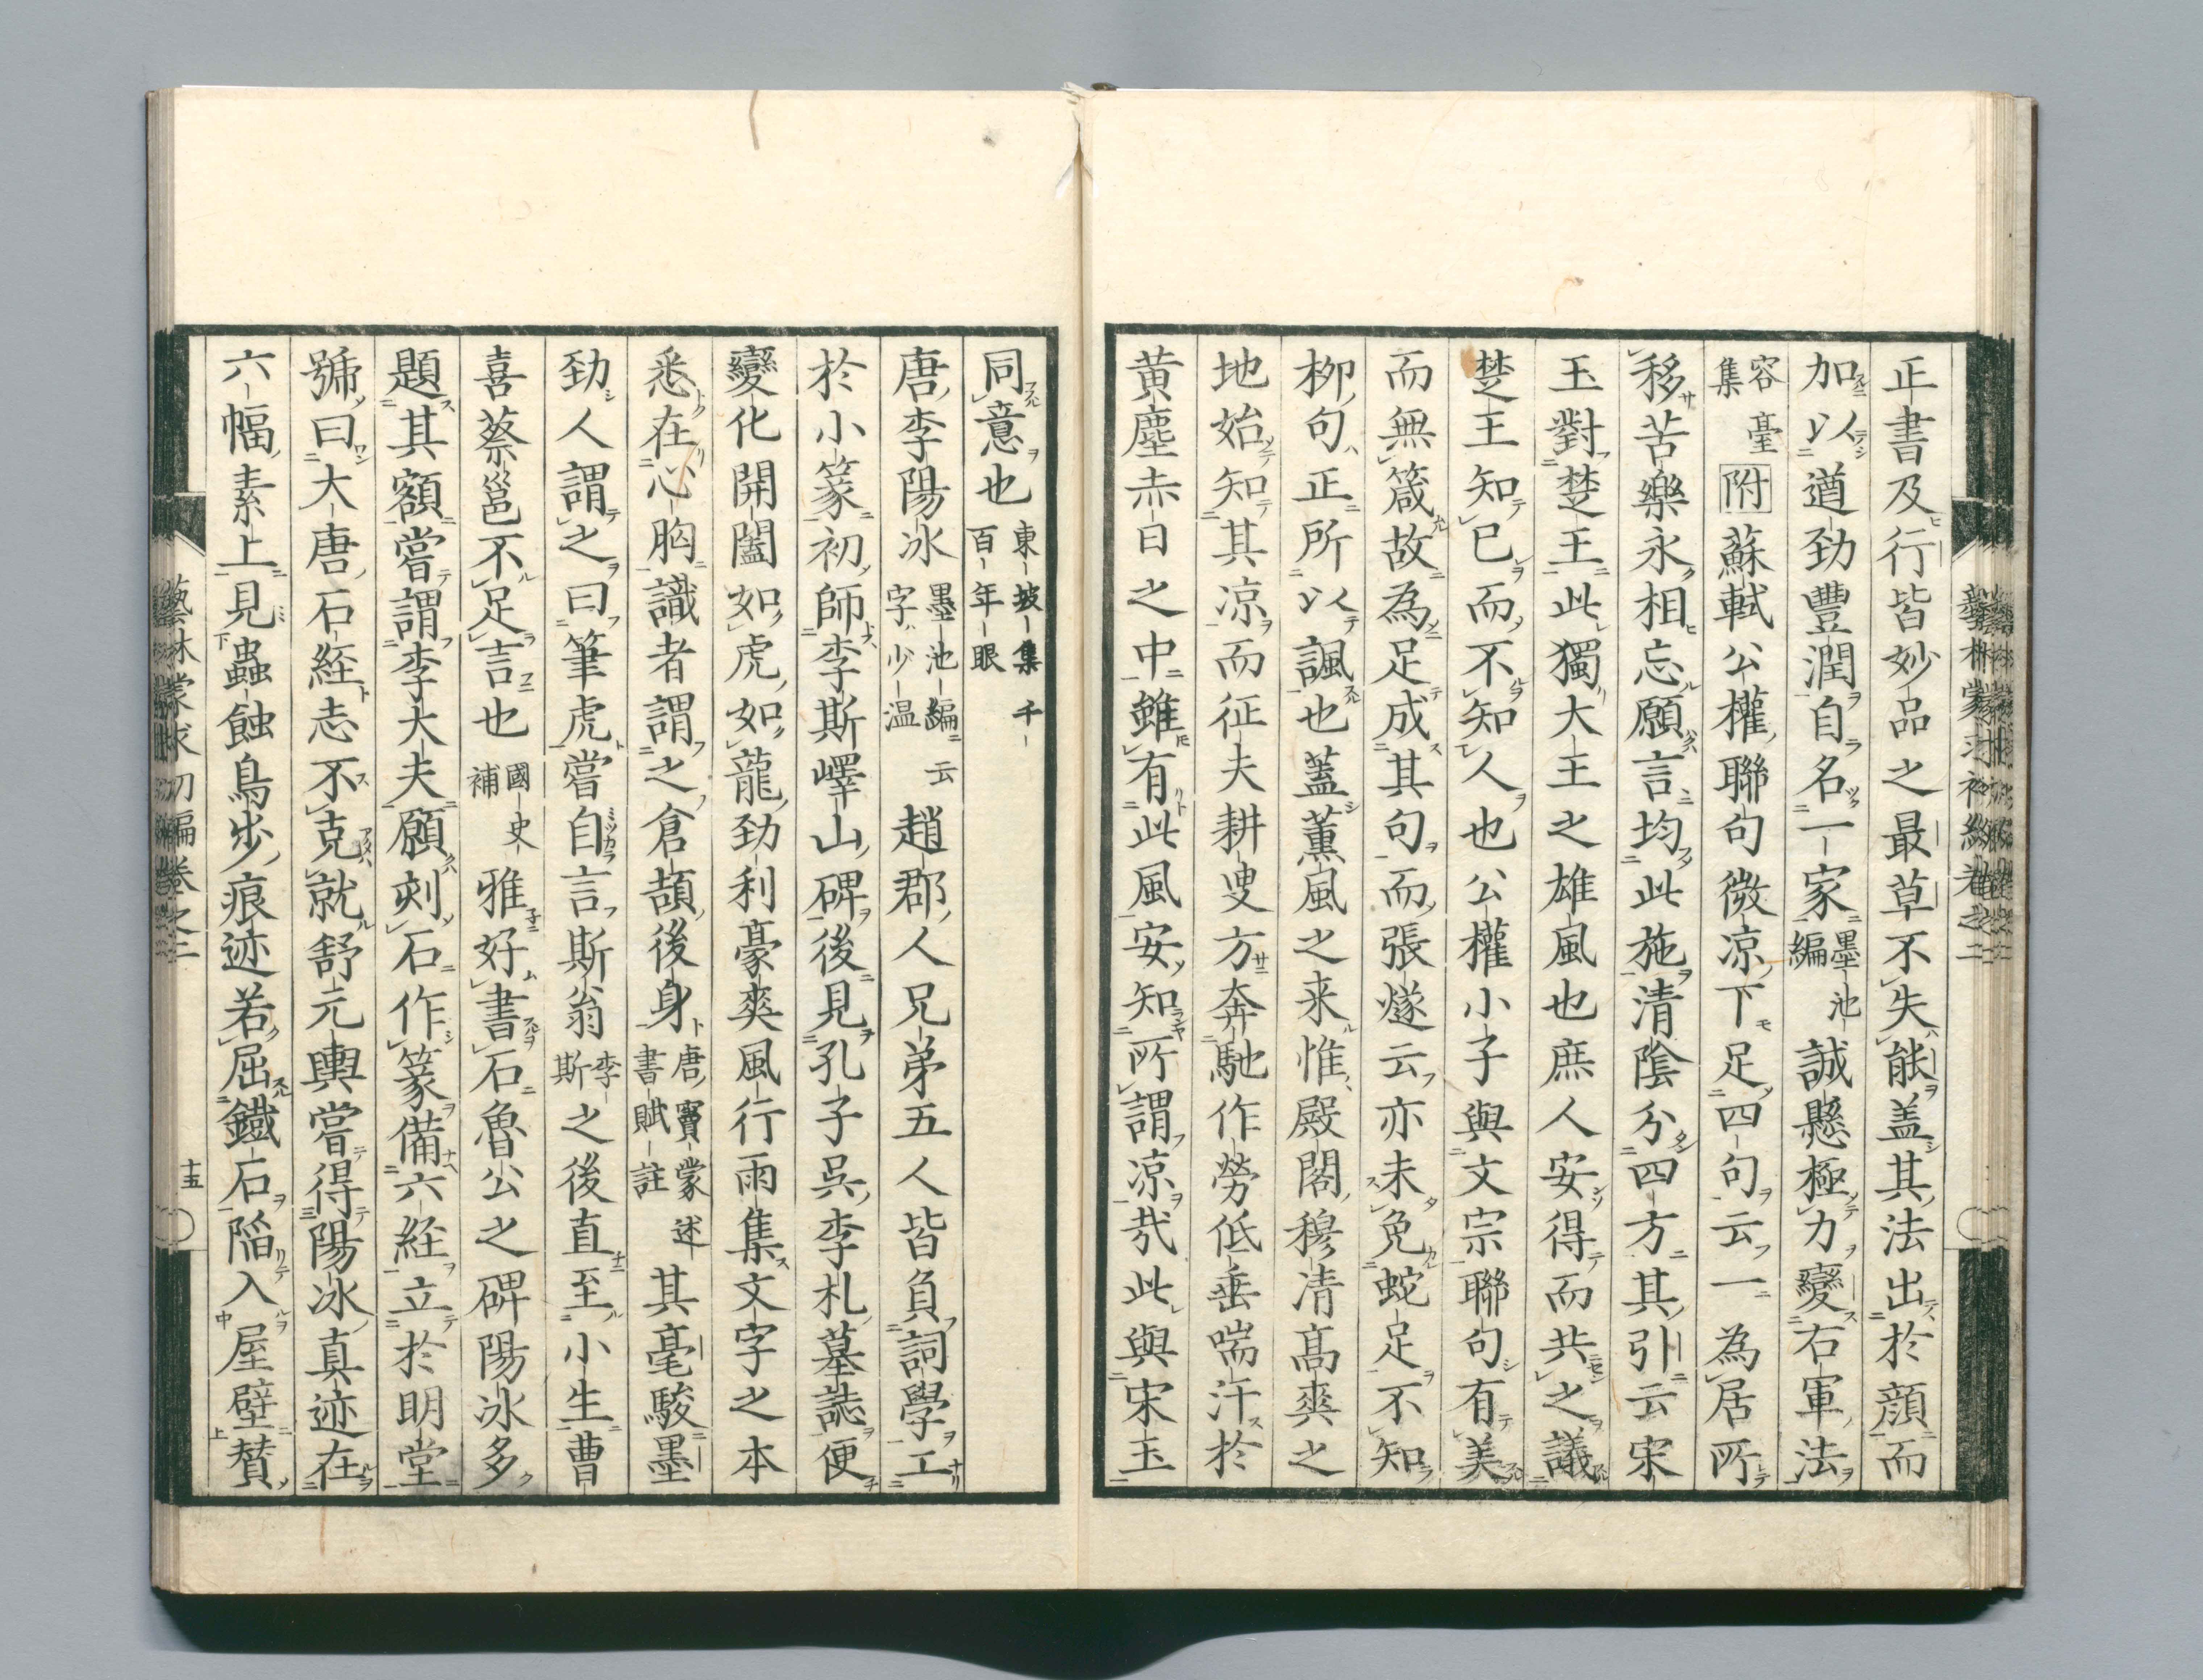 正書及行皆妙品之最草不失能盖其法出於顔而
加以遒勁豐潤自名一家墨池編誠懸極力變右軍法
容臺集附蘇軾公權聯句微凉下足四句云一為居所
移苦樂永相忘願言均此施清陰分四方其引云宋
玉對楚王此獨大王之雄風也庶人安得而共之議
楚王知已而不知人也公權小子與文宗聯句有美
而無箴故為足成其句而張燧云亦未免蛇足不知
柳句正所以諷也蓋薰風之来惟殿閣穆清髙爽之
地始知其凉而征夫耕叟方奔馳作勞低垂喘汗於
黄塵赤日之中雖有此風安知所謂凉哉此與宋玉
同意也東坡集千百年眼
唐李陽冰墨池編云字少温趙郡人兄弟五人皆負詞學工
於小篆初師李斯嶧山碑後見孔子呉李札墓誌便
變化開闔如虎如龍勁利豪爽風行雨集文字之本
悉在心胸識者謂之倉頡後身唐竇蒙述書賦註其毫駿墨
勁人謂之曰筆虎嘗自言斯翁李斯之後直至小生曹
喜蔡邕不足言也國史補雅好書石魯公之碑陽冰多
題其額嘗謂李大夫願刻石作篆備六経立於明堂
號曰大唐石経志不克就舒元輿嘗得陽冰真迹在
六幅素上見蟲蝕鳥步痕迹若屈鐵石陷入屋壁賛
藝林蒙求初編巻之二
十五